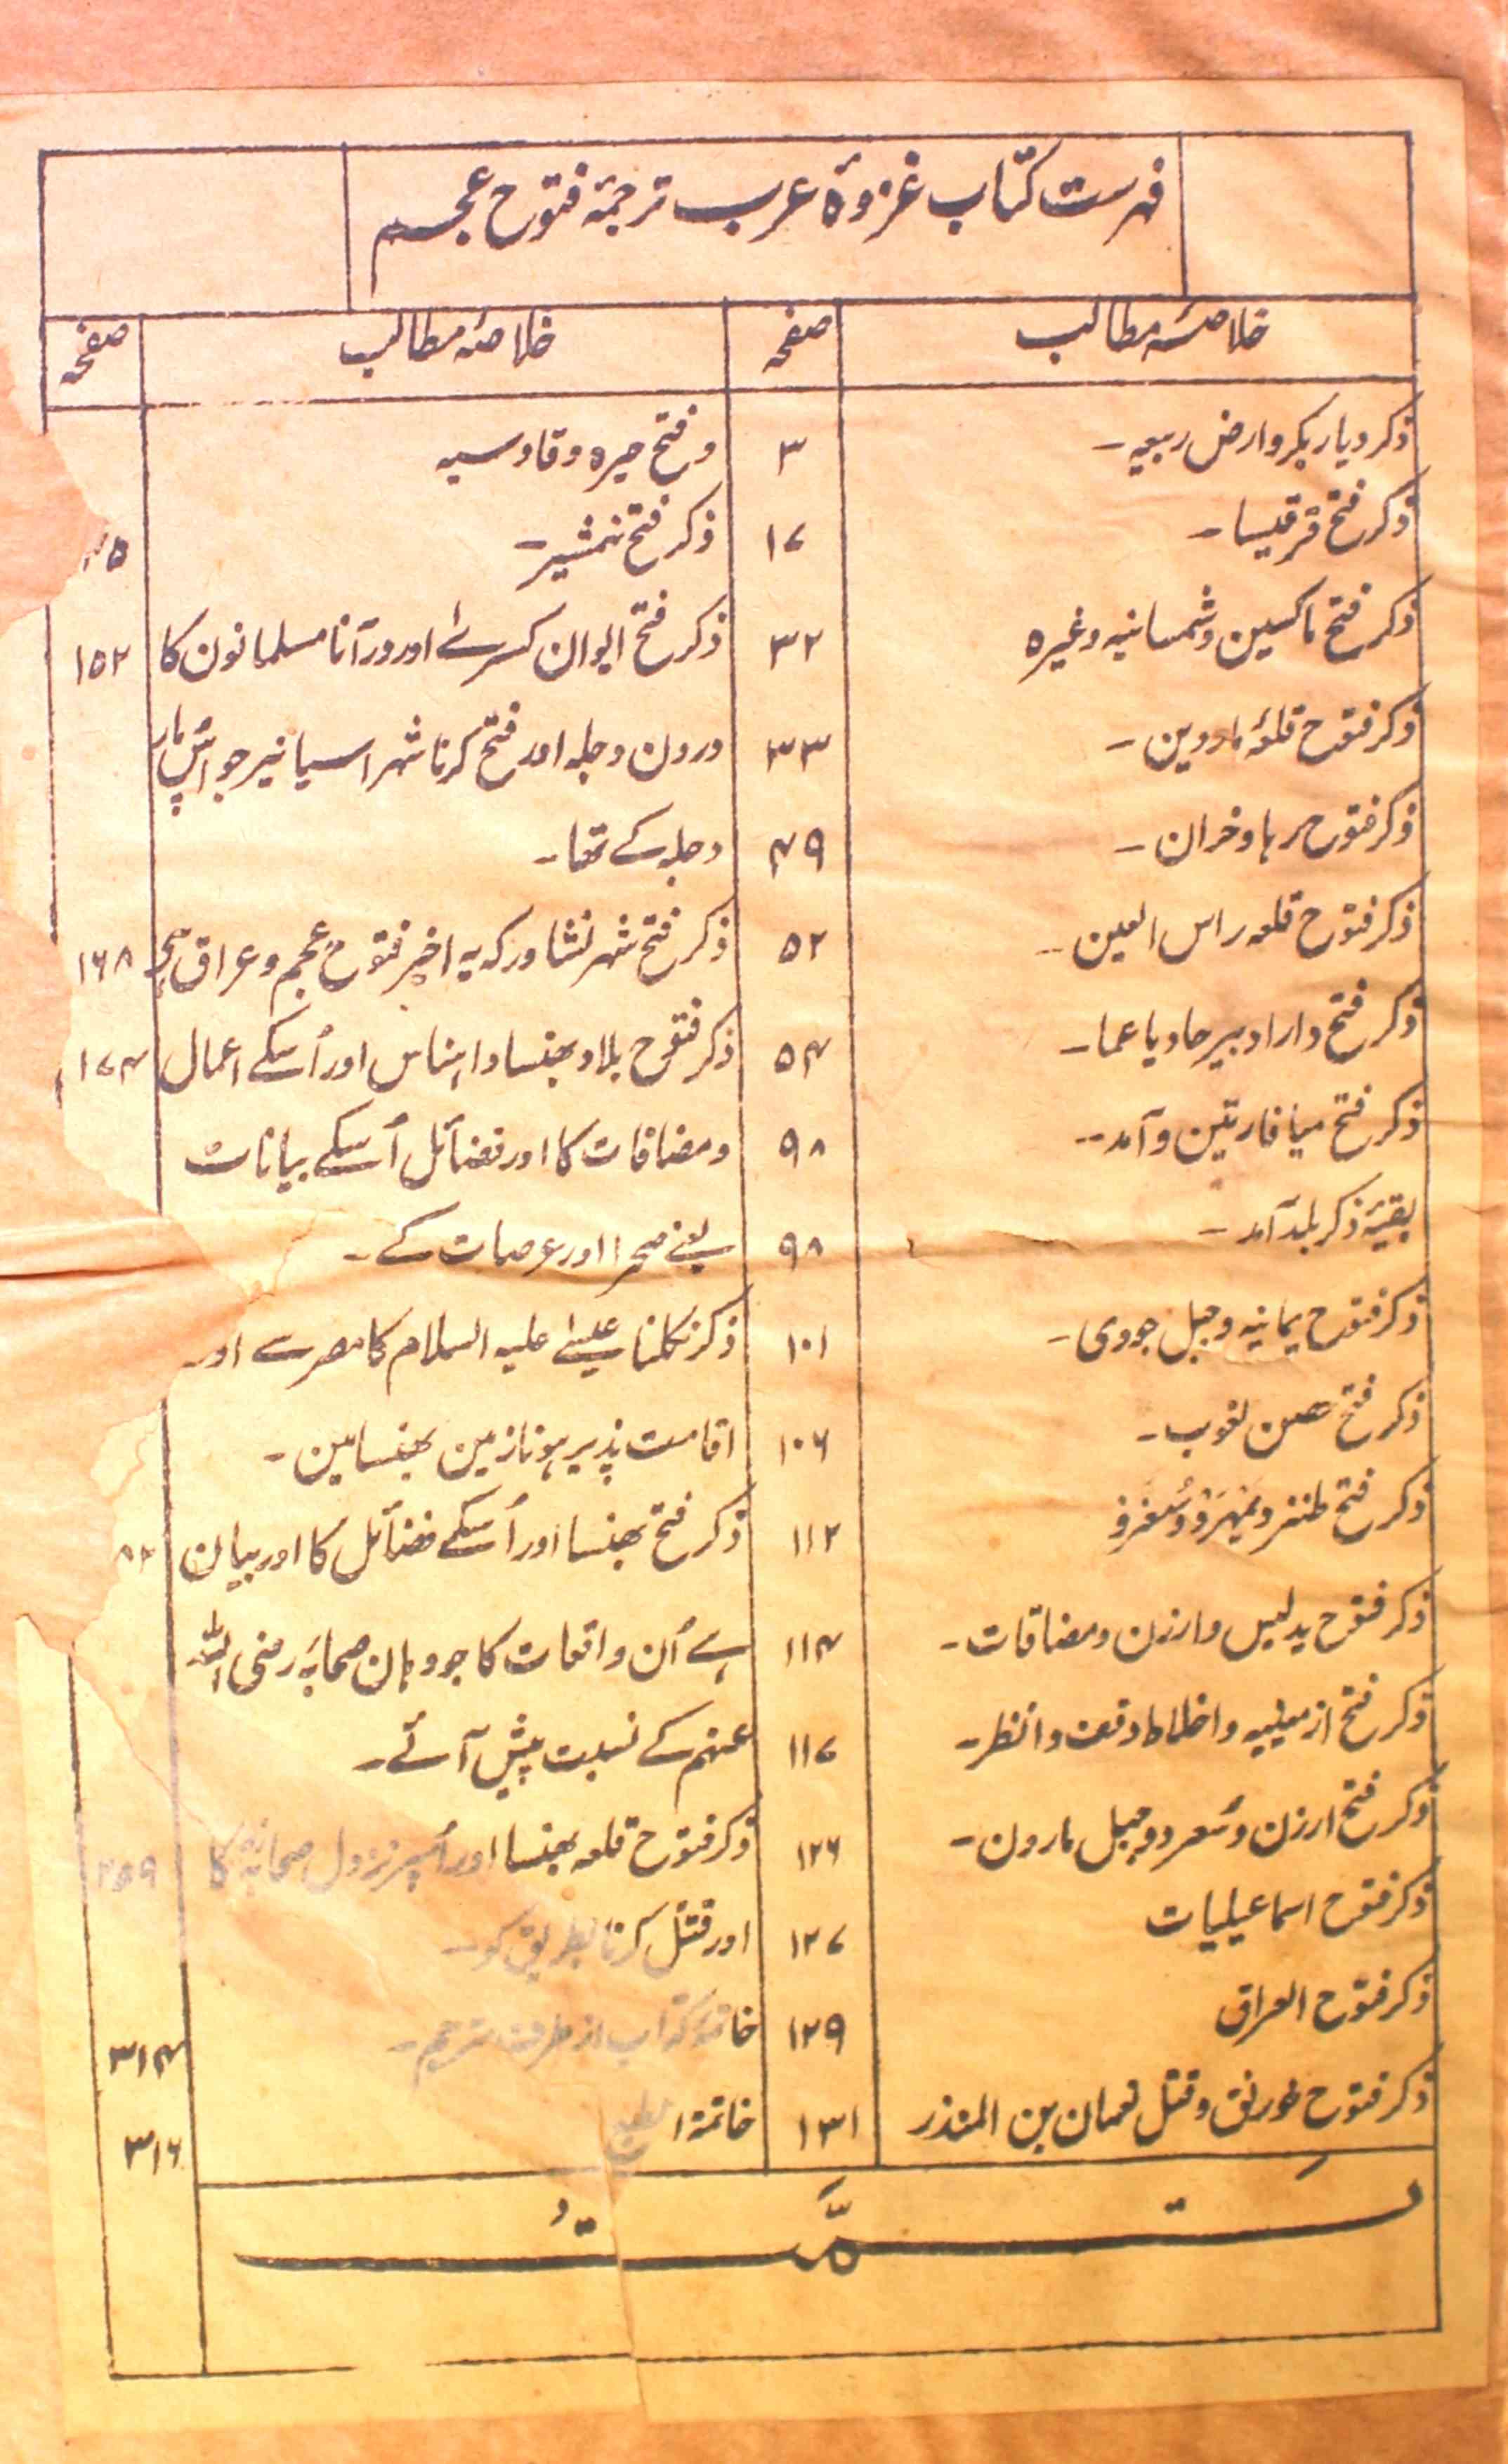 فہرست کتاب غزوۂ عرب ترجمۂ فتوح عجم
خلاصۂ مطالب صفحہ
ذکر دیار بکر و ارض ربیعہ - ۳
ذکر فتح قرقیسا - ۱۷
ذکر فتح ماکسین و شمسانیہ وغیرہ ۳۲
ذکر فتوح قلعۂ ماردین - ۳۳
ذکر فتوح رہا و حران - ۴۹
ذکر فتوح قلعہ راس العین - ۵۲
ذکر فتح دارا و بیرحا و باعما - ۵۴
ذکر فتح میافارقین و آمد - ۹۸
بقیۂ ذکر بلد آمد - ۹۸
ذکر فتوح یمانیہ و جبل جودی - ۱۰۱
ذکر فتح حصن لغوب - ۱۰۶
ذکر فتح طنز و ۱۱۲
ذکر فتوح بدلیس و ارزن و مضافات - ۱۱۴
ذکر فتح ارمینیہ و اخلاط - ۱۱۷
ذکر فتح ارزن و سعرد و جبل مارون - ۱۲۶
ذکر فتوح اسماعیلیات ۱۲۷
ذکر فتوح العراق ۱۲۹
ذکر فتوح خورنق و قتل نعمان بن المنذر ۱۳۱
خلاصۂ مطالب صفحہ
و فتح حیرہ و قادسیہ
ذکر فتح نہمشیر - ۵
ذکر فتح ایوان کسرےٰ اور در آنا مسلمانون کا ۱۵۲
درون دجلہ اور فتح کرنا شہر اسبانیر جو اُس پار
دجلہ کے تھا -
ذکر فتح شہر نشاور کہ یہ اخیر فتوح عجم و عراق ہے ۱۶۸
ذکر فتوح بلاد بہنسا و اہناس اور اُسکے اعمال ۱۷۴
و مضافات کا اور فضائل اُسکے بیانات
یعنے صحرا اور عرصات کے -
ذکر نکلنا عیسےٰ علیہ السلام کا مصر سے اور
اقامت پذیر ہونا زمین بہنسا مین -
ذکر فتح بہنسا اور اُسکے فضائل کا اور بیان
ہے اُن واقعات کا جو وہان صحابہ رضی اللہ
عنہم کے نسبت پیش آئے -
ذکر فتوح قلعہ بہنسا اور اُسپر نزول صحابہ کا
اور قتل کرنا بطریق کو -
خاتمہ کتاب از طرف مترجم - ۳۱۴
خاتمۃ الطبع ۳۱۶
تَمَّتْ